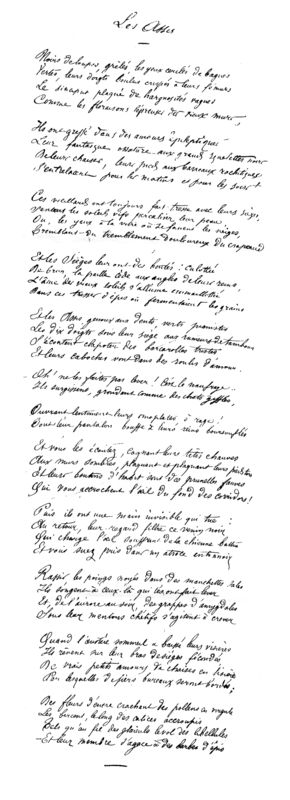 Les Assis
Noirs de loupes, grêlés, les yeux cerclés de bagues
Vertes, leurs doigts boulus crispés à leurs fémurs
Le sinciput plaqué de hargnosités vagues
Comme les floraisons lépreuses des vieux murs,
Ils ont greffé dans des amours épileptiques
Leur fantasque ossature aux grands squelettes noirs
De leurs chaises; leurs pieds aux barreaux rachitiques
S'entrelacent pour les matins et pour les soirs!
Ces vieillards ont toujours fait tresse avec leurs sièges,
Sentant les soleils vifs percaliser leur peau
Ou, les yeux à la vitre où se fanent les neiges,
Tremblant du tremblement douloureux du crapaud
Et les Sièges leur ont des bontés: culottée
De brun, la paille cède aux angles de leurs reins;
L'âme des vieux soleils s'allume emmaillottée
Dans ces tresses d'épis où fermentaient les grains
Et les Assis, genoux aux dents, verts pianistes
Les dix doigts sous leur siège aux rumeurs de tambour
S'écoutent clapoter des barcarolles tristes
Et leurs caboches vont dans des roulis d'amour.
- Oh! ne les faites pas lever! C'est le naufrage..
Ils surgissent, grondant comme des chats giflés,
Ouvrant lentement leurs omoplates, ô rage!
Tout leur pantalon bouffe à leurs reins boursouflés
Et vous les écoutez, cognant leurs têtes chauves
Aux murs sombres, plaquant et plaquant leurs pieds tors
Et leurs boutons d'habit sont des prunelles fauves
Qui vous accrochent l'œil du fond des corridors!
Puis ils ont une main invisible qui tue:
Au retour, leur regard filtre ce venin noir
Qui charge l'œil souffrant de la chienne battue
Et vous suez pris dans un atroce entonnoir
Rassis, les poings noyés dans des manchettes sales
Ils songent à ceux-là qui les ont fait lever
Et, de l'aurore au soir, des grappes d'amygdales
Sous leurs mentons chétifs s'agitent à crever
Quand l'austère sommeil a baissé leurs visières
Ils rêvent sur leur bras de sièges fécondés
De vrais petits amours de chaises en lisière
Par lesquelles de fiers bureaux seront bordés;
Des fleurs d'encre crachant des pollens en virgule
Les bercent, le long des calices accroupis
Tels qu'au fil des glaïeuls le vol des libellules
- Et leur membre s'agace à des barbes d'épis